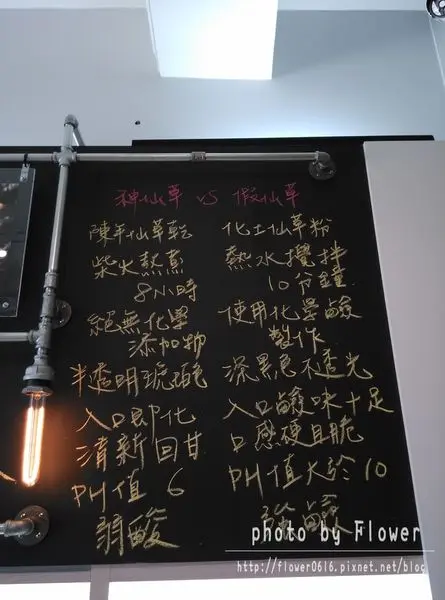 神仙草 VS 假仙草
陳年仙草乾
柴火熬煮
8小時
絕無化學
添加物
半透明琥珀色
入口即化
清新回甘
PH值 6
弱酸
化工仙草粉
熱水攪拌
10分鐘
使用化學鹼
製作
深黑色不透光
入口鹼味十足
口感硬且脆
PH值大於10
強鹼
photo by Flower
http://flower0616.pixnet.net/blog